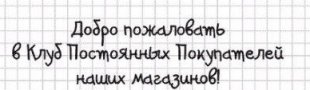 Добро пожаловать
в Клуб Постоянных Покупателей
наших магазинов!